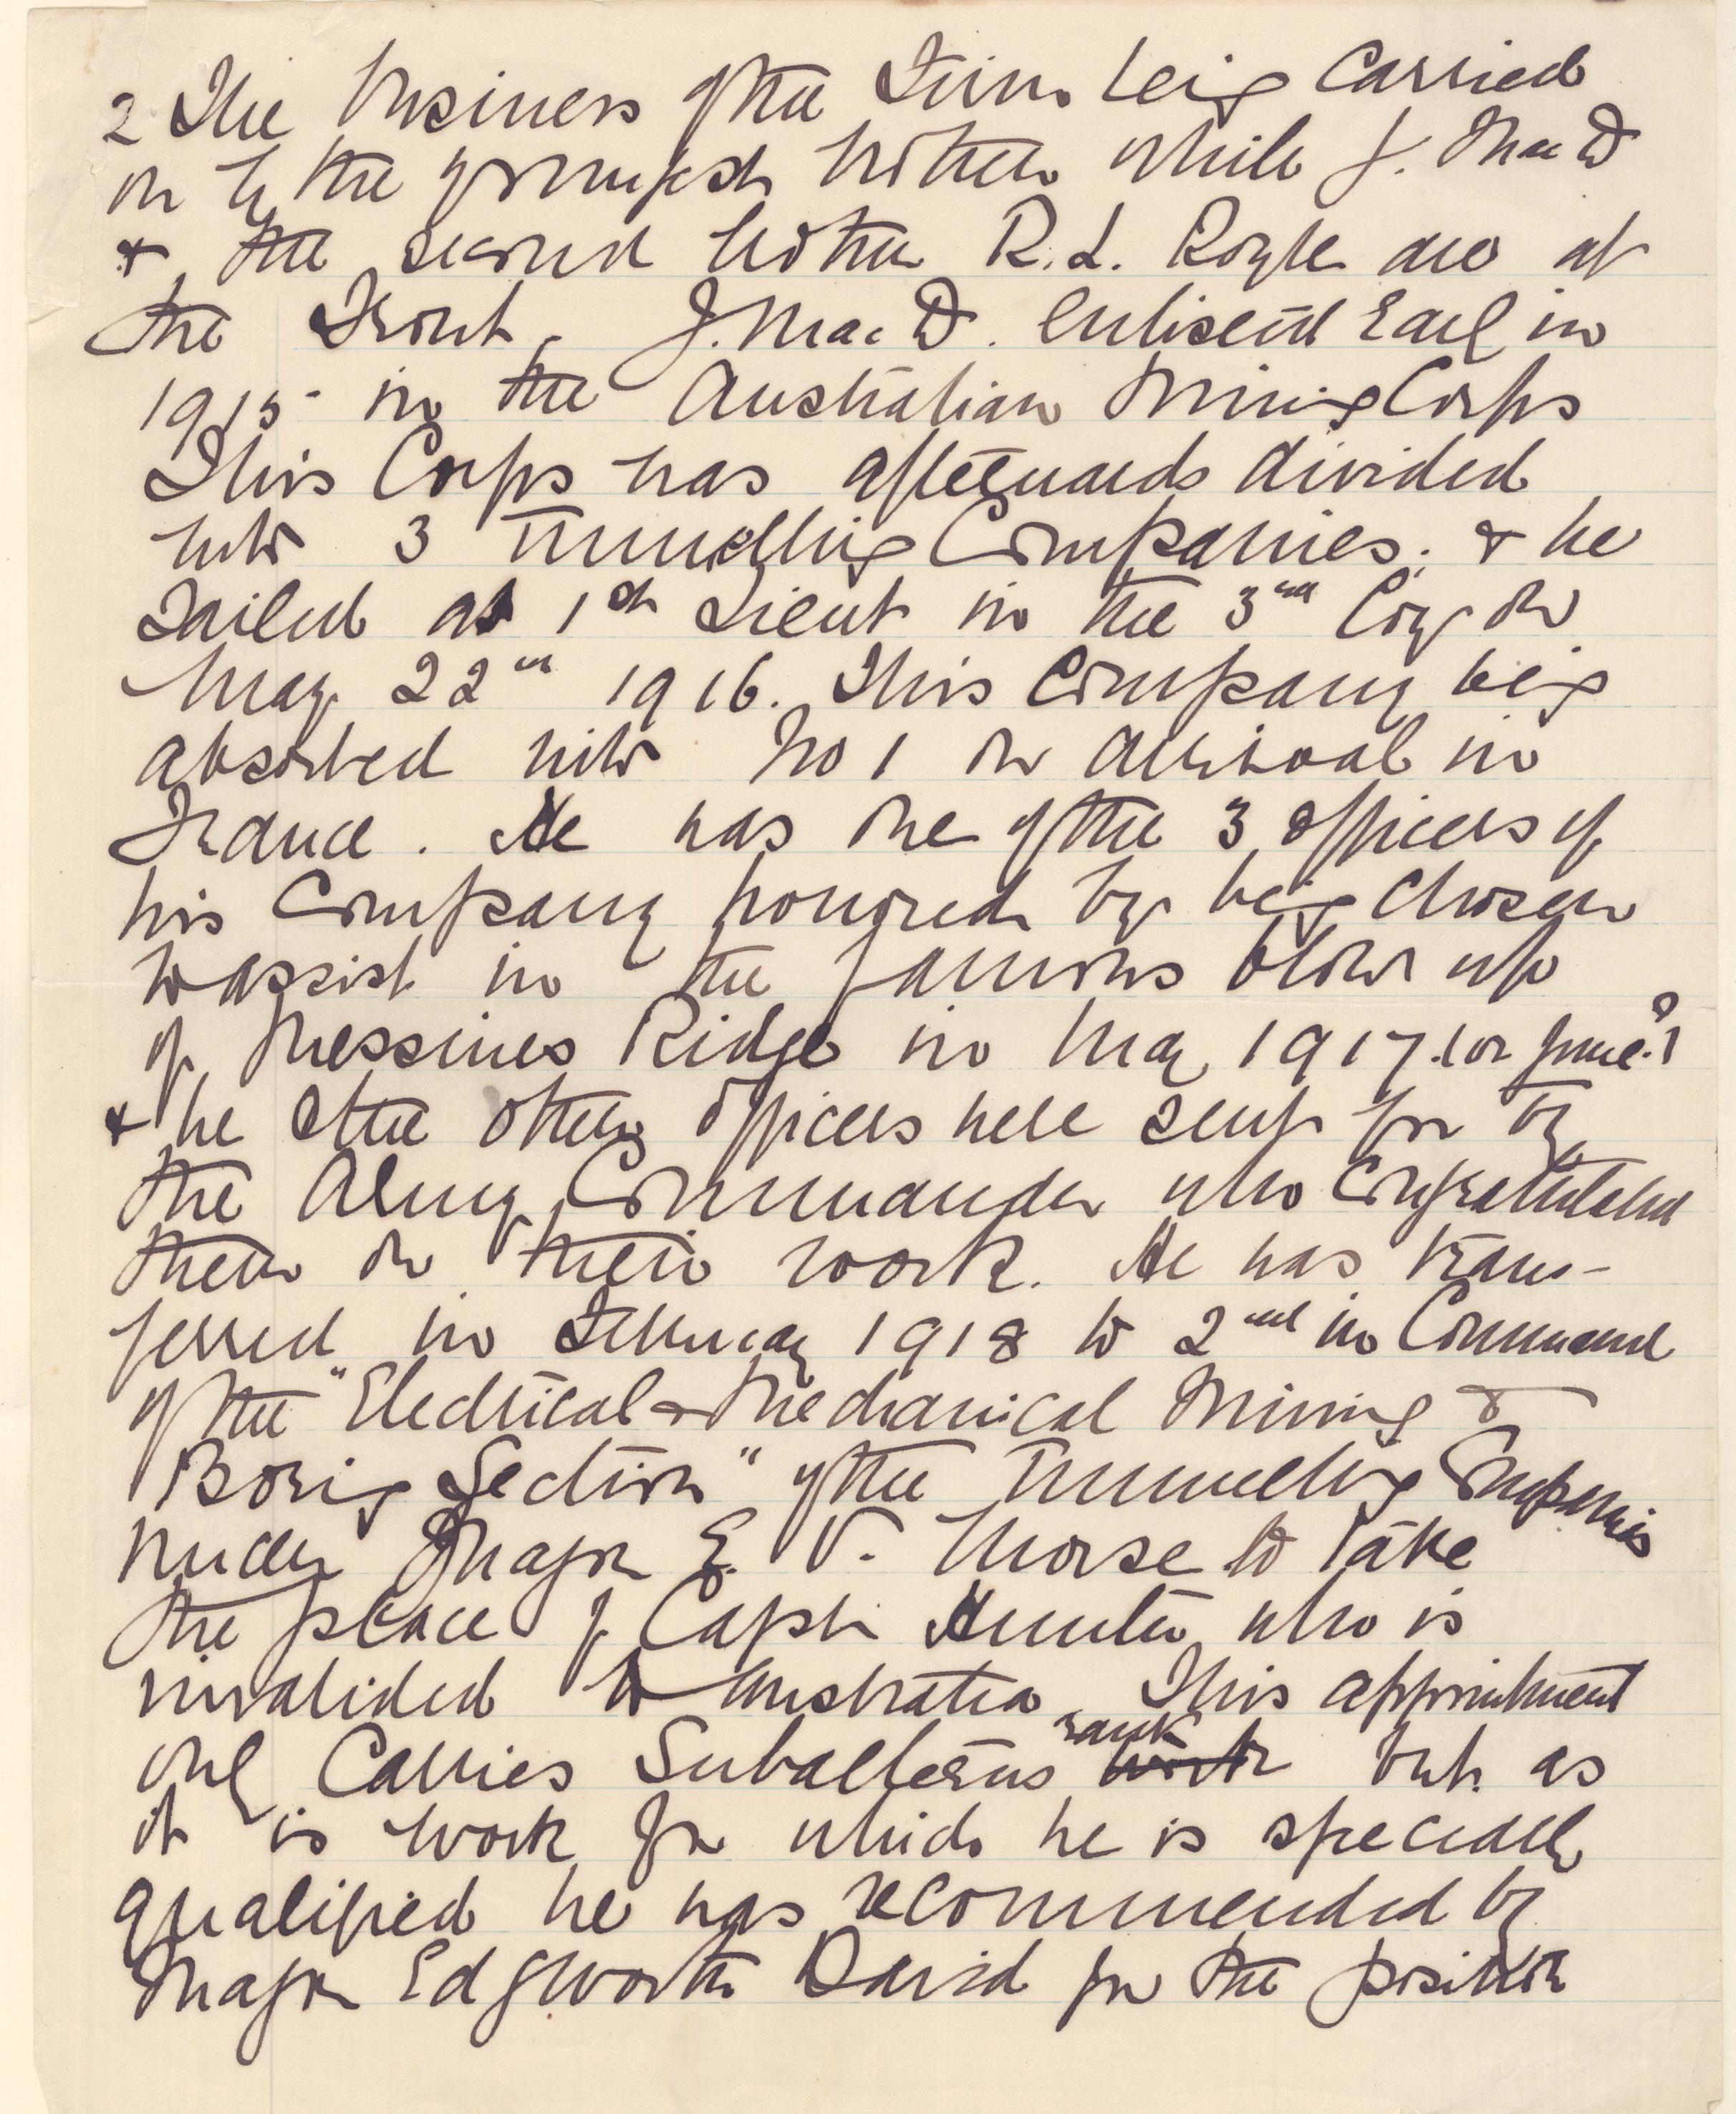 2 The business of the Firm being carried
on by the youngest brother while J. Mac D
& the second brother R.L. Royle are at
the Front. J. Mac D. enlisted early in
1915 in the Australian Mining Corps
This Corps was afterwards divided
into 3 Tunnelling Companies. & he
sailed as 1st Lieut in the 3rd Coy on
May 22nd 1916. This Company being
absorbed into No 1 on arrival in
France. He was one of the 3 officers of
his Company honored by being chosen
to assist in the famous blow up
of Messines Ridge in May 1917. (or June?)
& he & the other officers were sent for by
the Army Commander who congratulated
them on their work. He was trans-
ferred in February 1918 to 2nd in Command
of the "Electrical & Mechanical Mining &
Boring Section" of the Tunnelling Companies
under Major E. V. Morse to take
the place of Capt. Hunter who is
invalided to Australia. This appointment
only carries Subalterns rank but as
it is work for which he is specially
qualified he was recommended by
Major Edgworth David for the position